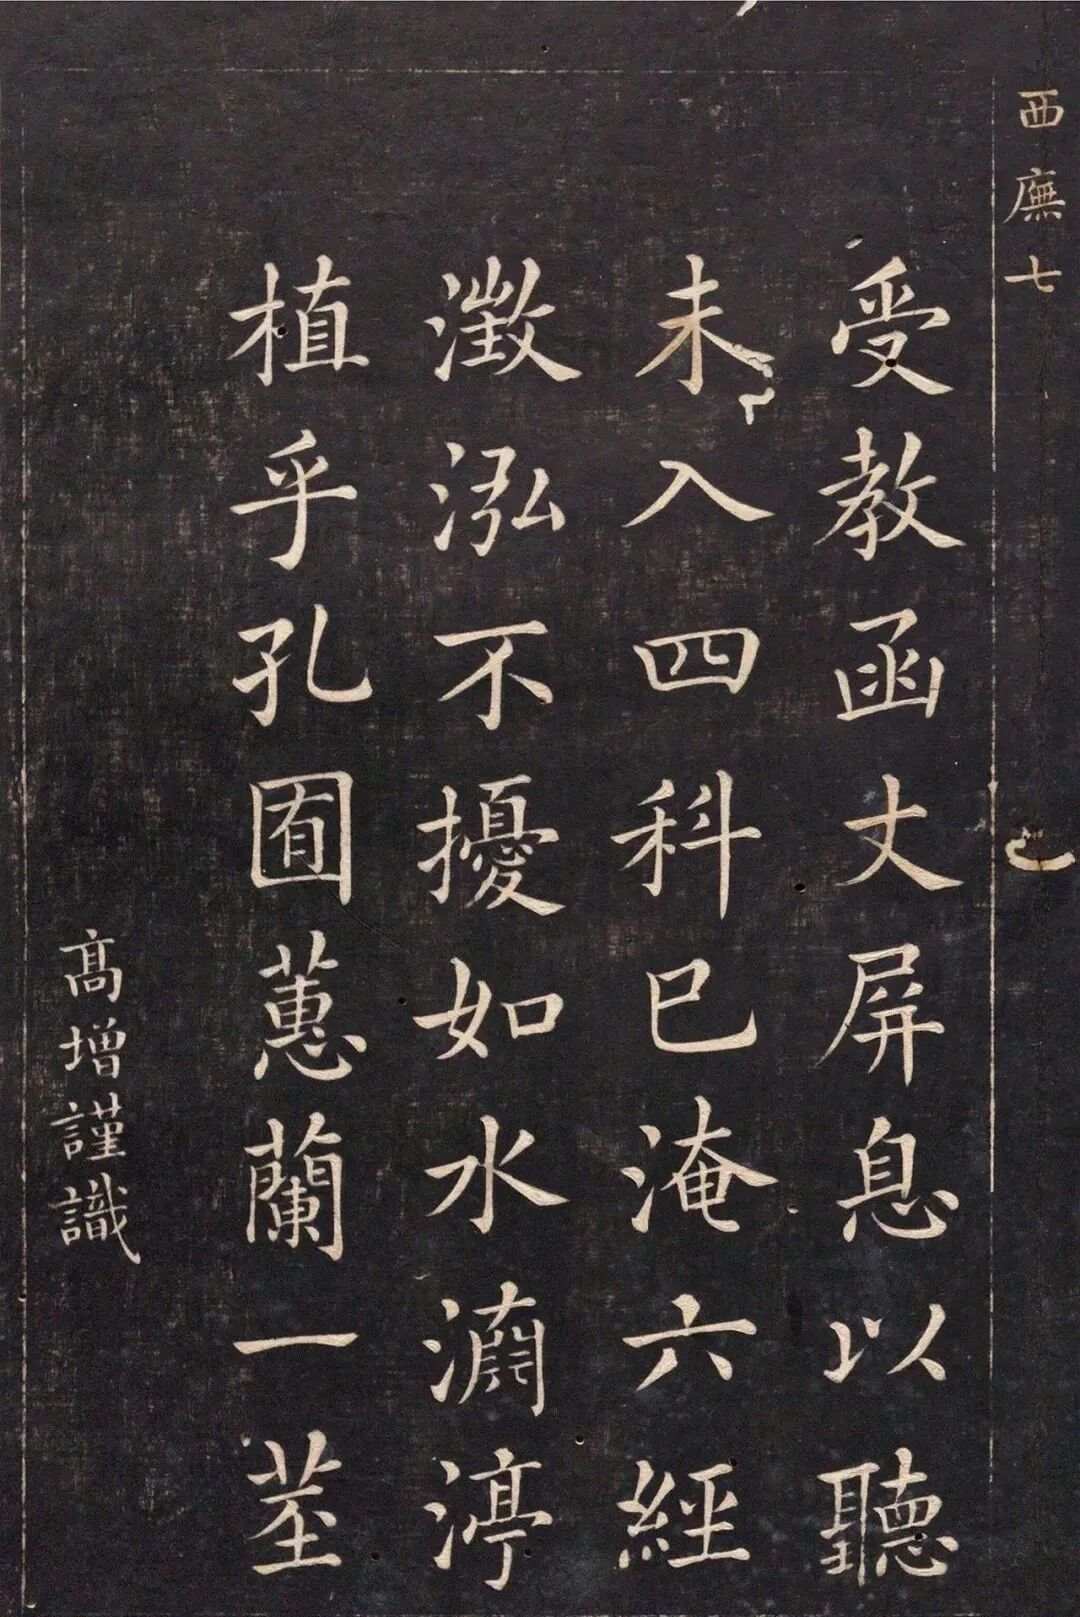 西廡七
受教函丈屏息以聽
未入四科已淹六經
澂泓不擾如水淵渟
植乎孔囿蕙蘭一茎
高增謹識